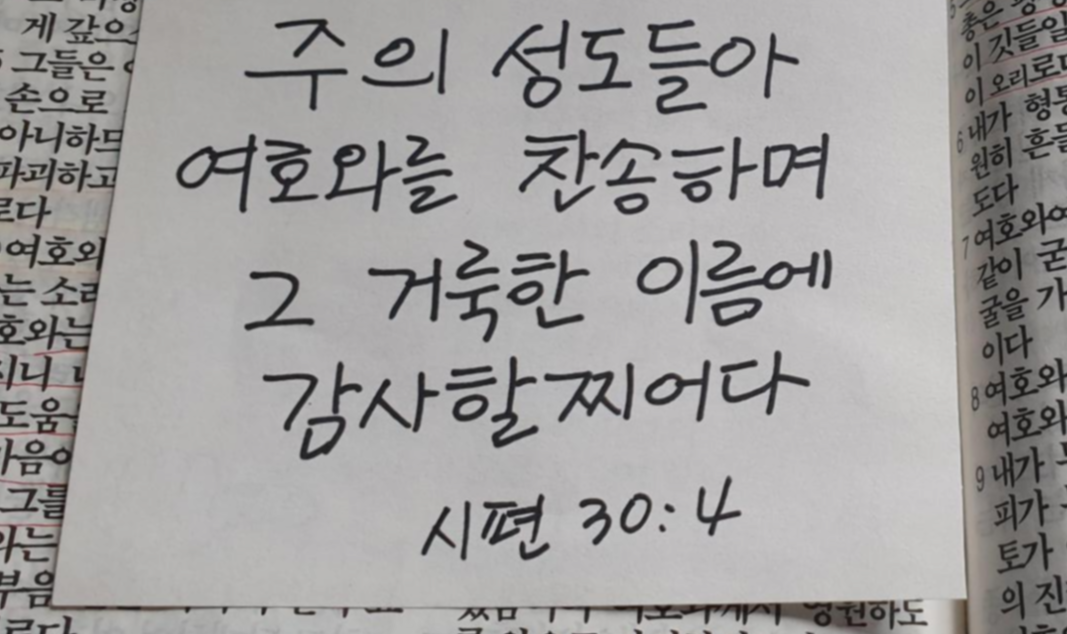 주의 성도들아
여호와를 찬송하며
그 거룩한 이름에
감사할찌어다
시편 30:4
게 갚으
그들은
손으로
아니하므
파괴하고
로다
여호와
는 소리
호와는
시니
도움
마음이
그를
와는
부음
르다
총은
이 깃들일
이 오리로다
6 내가 형통
원히 흔들
도다
7 여호와여
같이 굳
굴을 가
이다
8 여호와
여호와
9 내가
피가
토가
의 진
영원하도